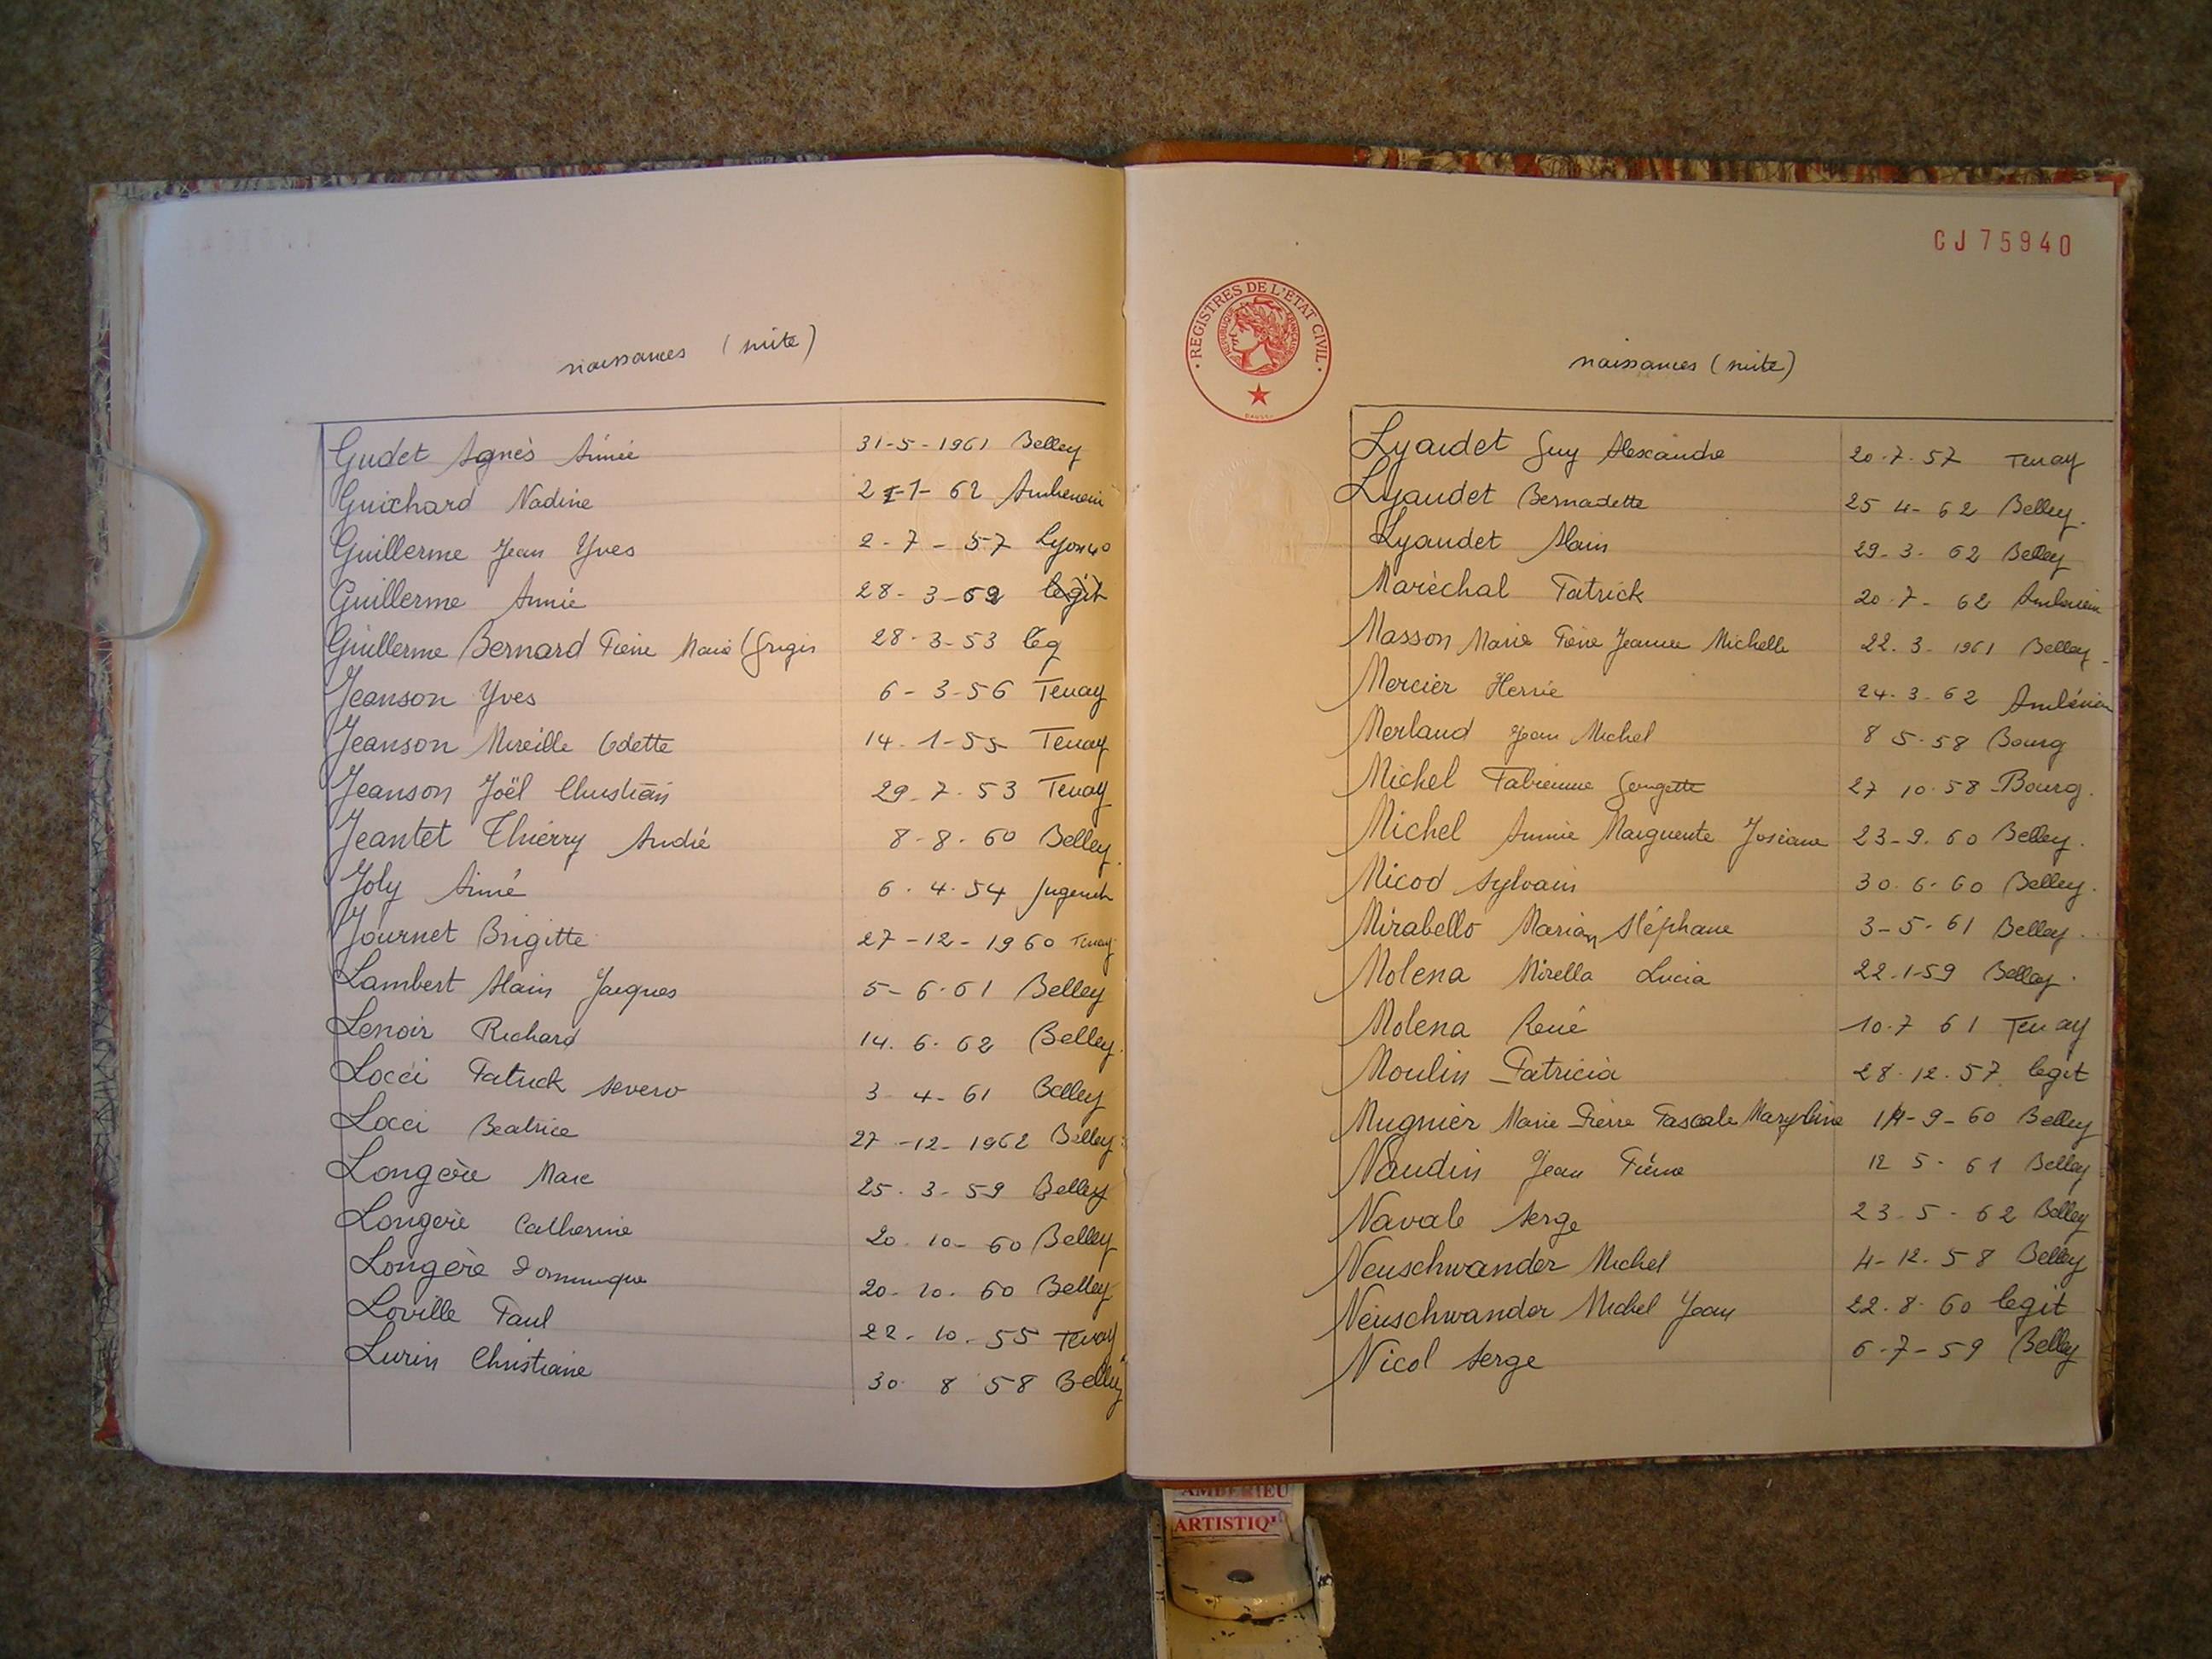 naissances (suite)
Gudet Agnès Aimée 31-5-1961 Belley
Guichard Nadine 21-1-62 Ambérieu
Guillerme Jean Yves 2-7-57 Lyon 40
Guillerme Annie 28-3-62 legit
Guillerme Bernard Pierre Marie (Grigis 28-3-53 leg
Jeanson Yves 6-3-56 Tenay
Jeanson Mireille Odette 14-1-55 Tenay
Jeanson Joël Christian 29.7.53 Tenay
Jeantet Thierry André 8-8-60 Belley.
Joly Aimé 6.4.54 Jugement
Journet Brigitte 27-12-1960 Tenay
Lambert Alain Jacques 5-6-61 Belley
Lenoir Richard 14.6.62 Belley.
Locci Patrick Severo 3 4-61 Belley
Locci Beatrice 27-12-1962 Belley
Longère Marc 25.3.59 Belley
Longère Catherine 20.10-60 Belley
Longère Dominique 20-10.60 Belley
Loville Paul 22-10-55 Tenay
Lurin Christiane 30 8 58 Belley
CJ75940
REGISTRES DE L'ETAT CIVIL
REPUBLIQUE FRANCAISE
naissances (suite)
Lyaudet Guy Alexandre 20.7.57 Tenay
Lyaudet Bernadette 25 4-62 Belley.
Lyaudet Alain 29-3-62 Belley
Maréchal Patrick 20.7-62 Ambérieu
Masson Marie Pierre Jeanne Michelle 22.3.1961 Belley-
Mercier Hervé 24.3.62 Ambérieu
Merland Jean Michel 8 5.58 Bourg
Michel Fabienne Georgette 27 10.58 Bourg.
Michel Annie Marguerite Josiane 23-9.60 Belley.
Micod Sylvain 30.6-60 Belley.
Mirabello Marian Stéphane 3-5-61 Belley.
Molena Mirella Lucia 22-1-59 Belley.
Molena René 10-7 61 Tenay
Moulin Patricia 28.12.57 legit
Mugnier Marie Pierre Pascale Marylène 14-9-60 Belley
Naudin Jean Pierre 12 5-61 Belley
Navale Serge 23-5-62 Belley
Neuschwander Michel 4-12.58 Belley
Neuschwander Michel Jean 22.8.60 legit
Nicol Serge 6-7-59 Belley
AMBERIEU
ARTISTIQU